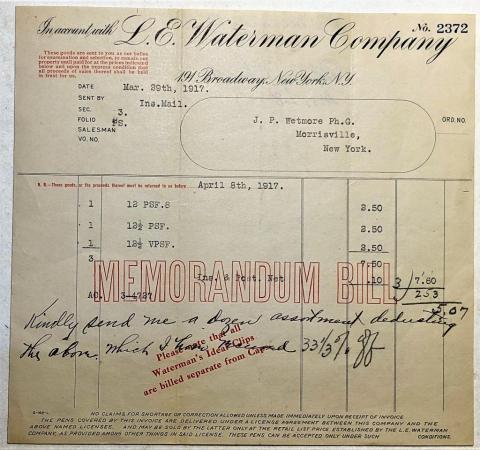 In account with L. E. Waterman Company No. 2372
These goods are sent to you as our bailee
for examination and selection, to remain our
property until paid for at the prices indicated
below and upon the express condition that
all proceeds of sales thereof shall be held
in trust for us.
191 Broadway, New York, N.Y.
DATE Mar. 29th, 1917.
SENT BY Ins.Mail.
SEC. 3.
FOLIO #S.
SALESMAN
VO. NO.
J. P. Wetmore Ph.G.
Morrisville,
New York.
ORD. NO.
N. B.—These goods, or the proceeds thereof must be returned to us before April 8th, 1917.
1 12 PSF.S 2.50
1 12½ PSF. 2.50
1 12½ VPSF. 2.50
3 7.50
Ins. & Post. Net .10 3 7.60
MEMORANDUM BILL
253
AC. 3-4737 5.07
Kindly send me a dozen assortment deducting
the above. which I have 33 1/3 % off
Please note that all
Waterman's Ideal Clips
are billed separate from Caps
NO CLAIMS FOR SHORTAGE OR CORRECTION ALLOWED UNLESS MADE IMMEDIATELY UPON RECEIPT OF INVOICE
THE PENS COVERED BY THIS INVOICE ARE DELIVERED UNDER A LICENSE AGREEMENT BETWEEN THIS COMPANY AND THE
ABOVE NAMED LICENSEE. AND MAY BE SOLD BY THE LATTER ONLY AT THE RETAIL LIST PRICE ESTABLISHED BY THE L.E. WATERMAN
COMPANY, AS PROVIDED AMONG OTHER THINGS IN SAID LICENSE. THESE PENS CAN BE ACCEPTED ONLY UNDER SUCH CONDITIONS.